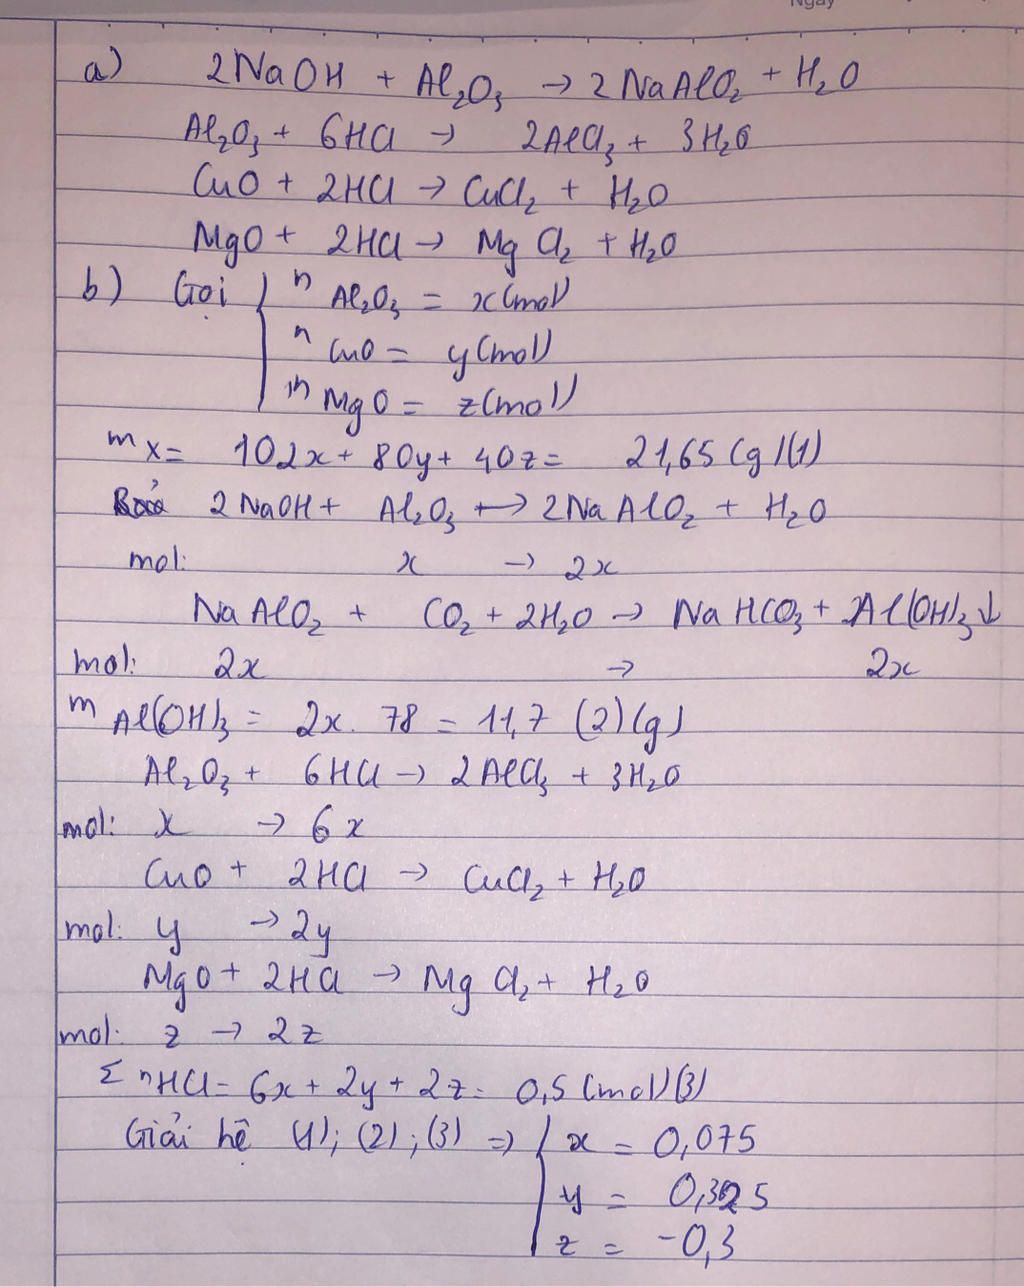 Ngày
a) 2NaOH + Al₂O₃ → 2NaAlO₂ + H₂O
Al₂O₃ + 6HCl → 2AlCl₃ + 3H₂O
CuO + 2HCl → CuCl₂ + H₂O
MgO + 2HCl → MgCl₂ + H₂O
b) Gọi { n Al₂O₃ = x (mol)
n CuO = y (mol)
n MgO = z (mol)
m X = 102x + 80y + 40z = 21,65 (g) (1)
2NaOH + Al₂O₃ → 2NaAlO₂ + H₂O
mol: x → 2x
NaAlO₂ + CO₂ + 2H₂O → NaHCO₃ + Al(OH)₃↓
mol: 2x → 2x
m Al(OH)₃ = 2x. 78 = 11,7 (2) (g)
Al₂O₃ + 6HCl → 2AlCl₃ + 3H₂O
mol: x → 6x
CuO + 2HCl → CuCl₂ + H₂O
mol: y → 2y
MgO + 2HCl → MgCl₂ + H₂O
mol: z → 2z
Σ nHCl = 6x + 2y + 2z = 0,5 (mol) (3)
Giải hệ (1); (2); (3) ⇒ { x = 0,075
y = 0,325
z = -0,3